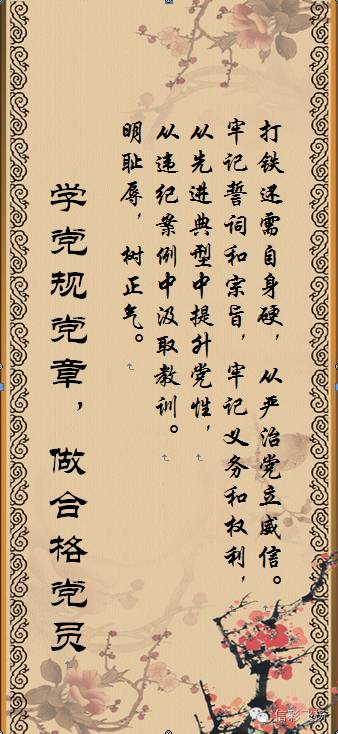 打铁还需自身硬，从严治党立威信。
牢记誓词和宗旨，牢记义务和权利，
从先进典型中提升党性，
从违纪案例中汲取教训。
明耻辱，树正气。
学党规党章，做合格党员